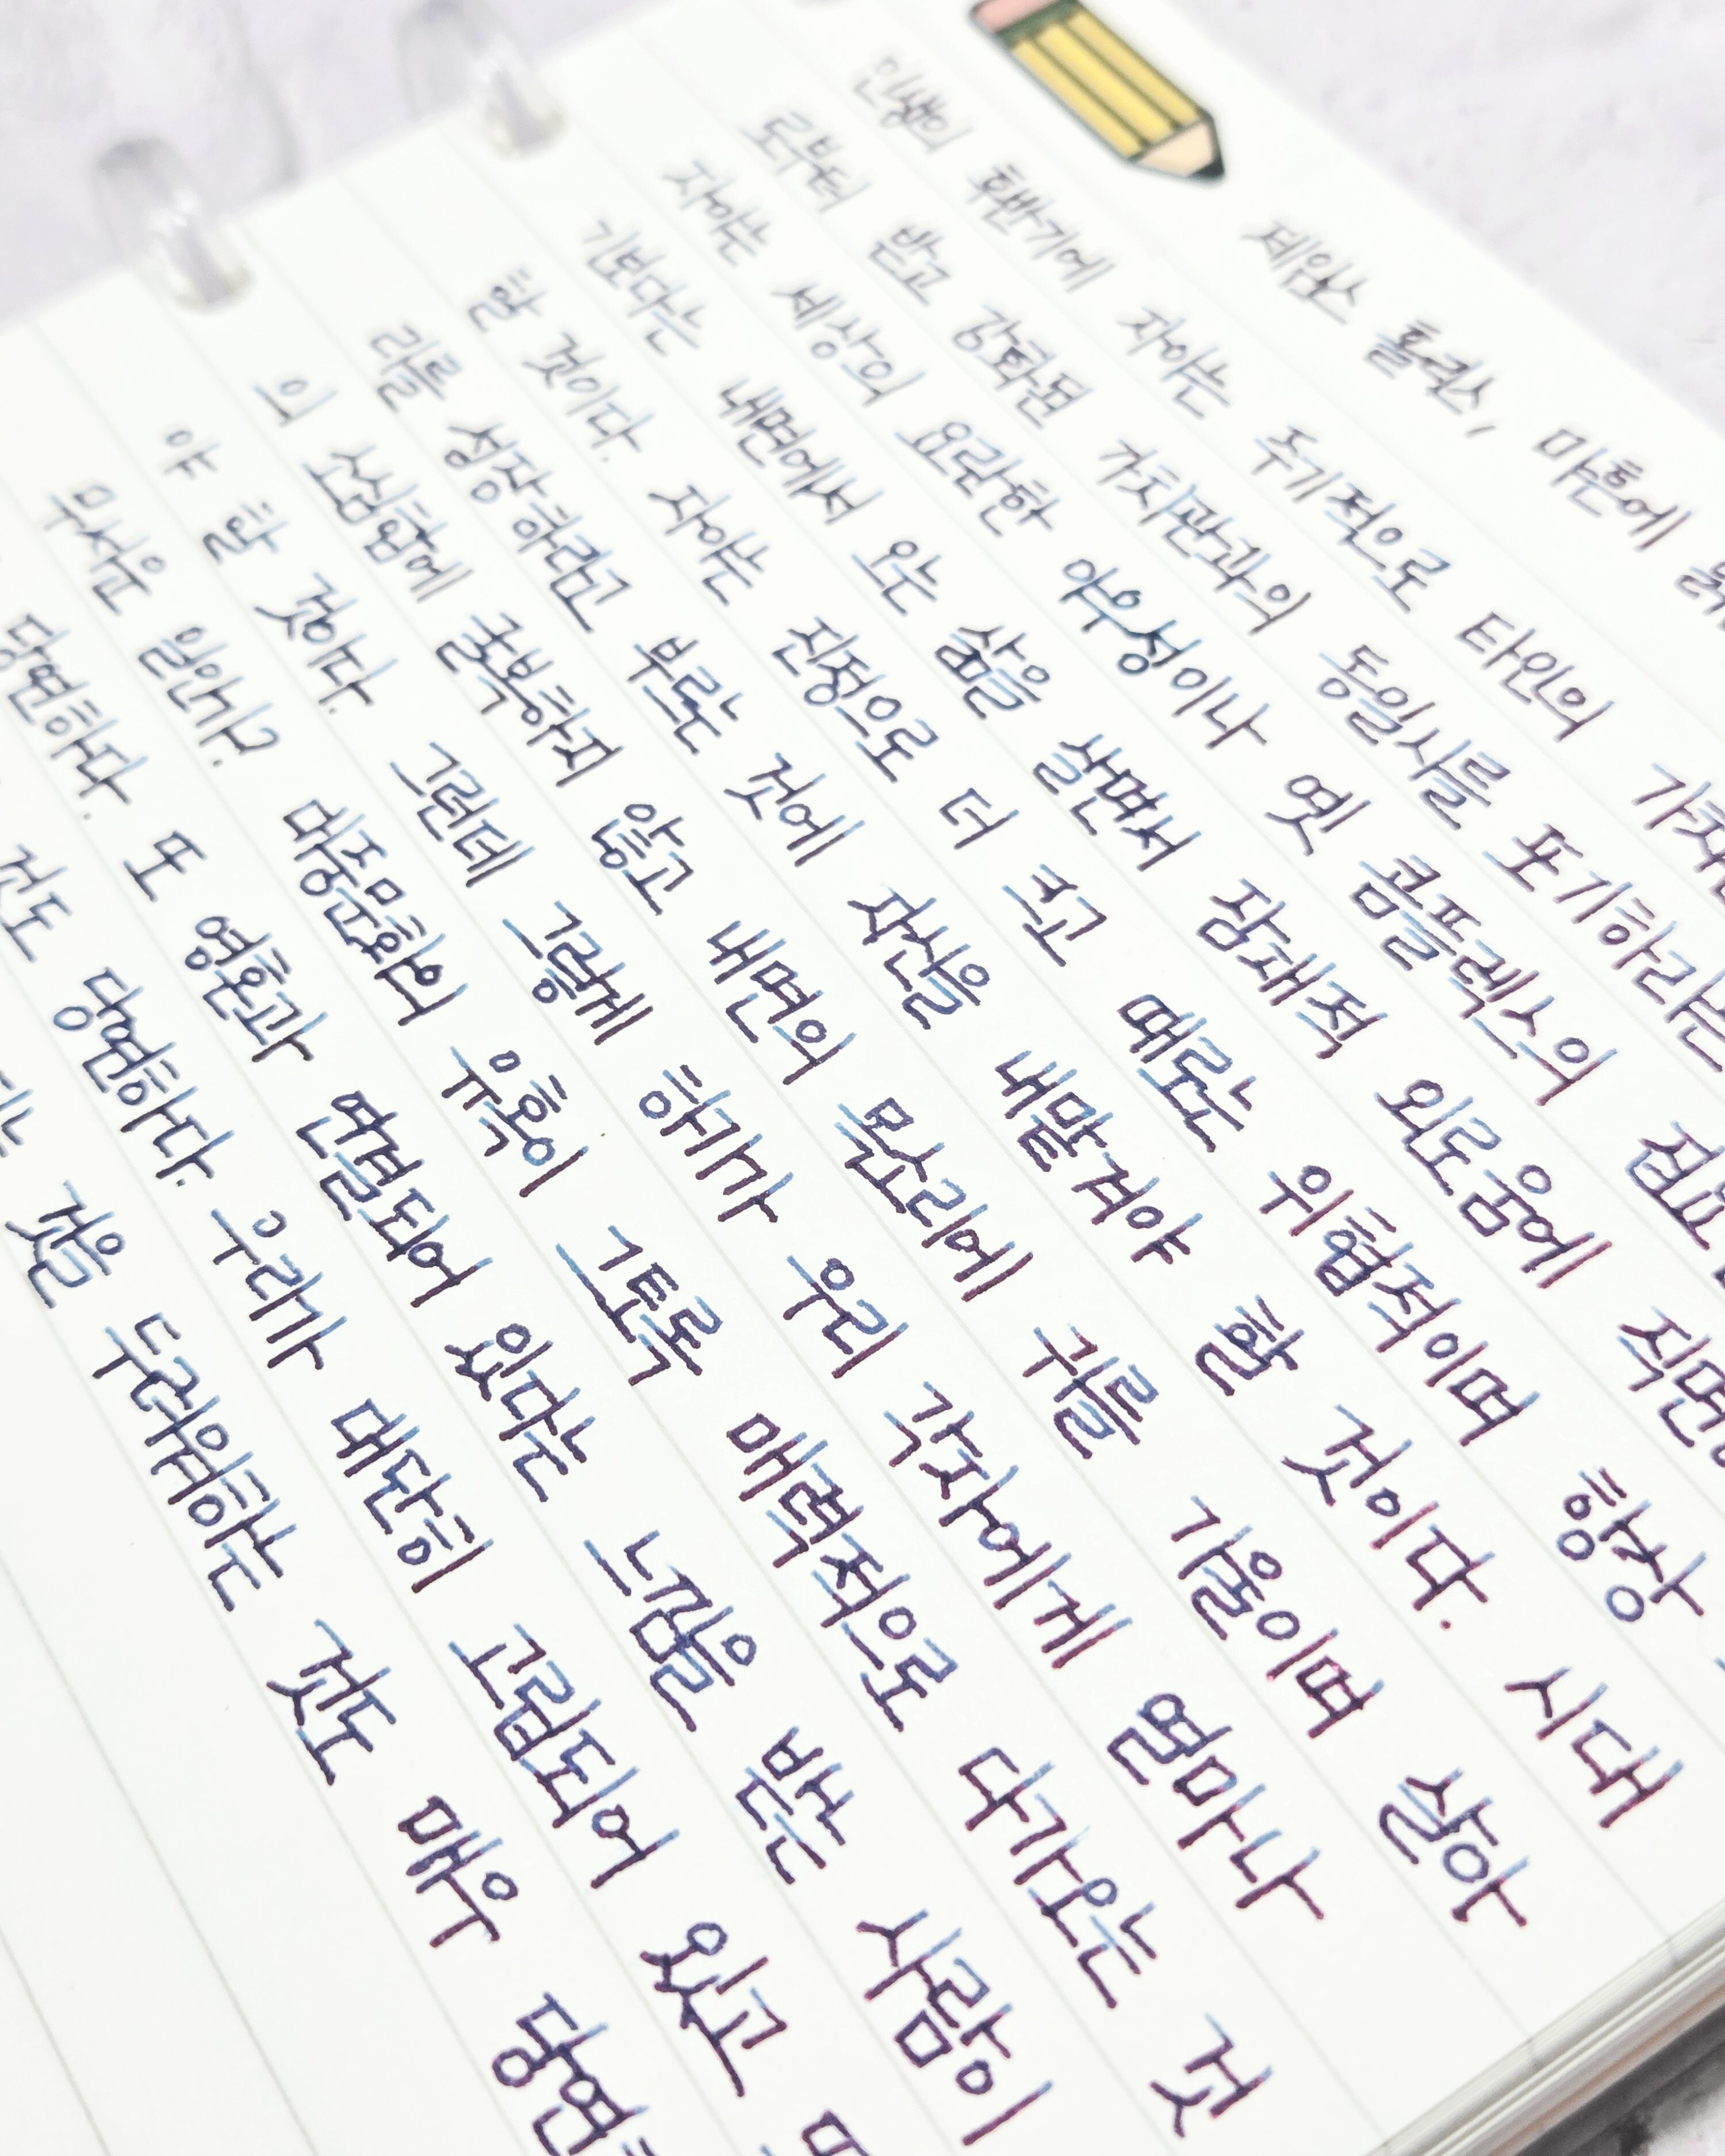 제임스 홀리스, 마흔에
인생의 후반기에 자아는 주기적으로 타인의
로부터 받고 강화된 가치관과의 동일시를 포기하라는
자아는 세상의 요란한 아우성이나 옛 콤플렉스의
기보다는 내면에서 오는 삶을 살면서 잠재적 외로움에
할 것이다. 자아는 진정으로 더 크고 때로는 위협적이며 항상
리를 성장하라고 부르는 것에 자신을 내맡겨야 할 것이다. 시대
의 소심함에 굴복하지 않고 내면의 목소리에 귀를 기울이며 살아
야 할 것이다. 그런데 그렇게 하기가 우리 각자에게 얼마나
무서운 일인가? 대중문화의 유혹이 그토록 매력적으로 다가오는 것
당연하다. 또 영혼과 연결되어 있다는 느낌을 받는 사람이
것도 당연하다. 우리가 대단히 고립되어 있고
것을 두려워하는 것도 매우